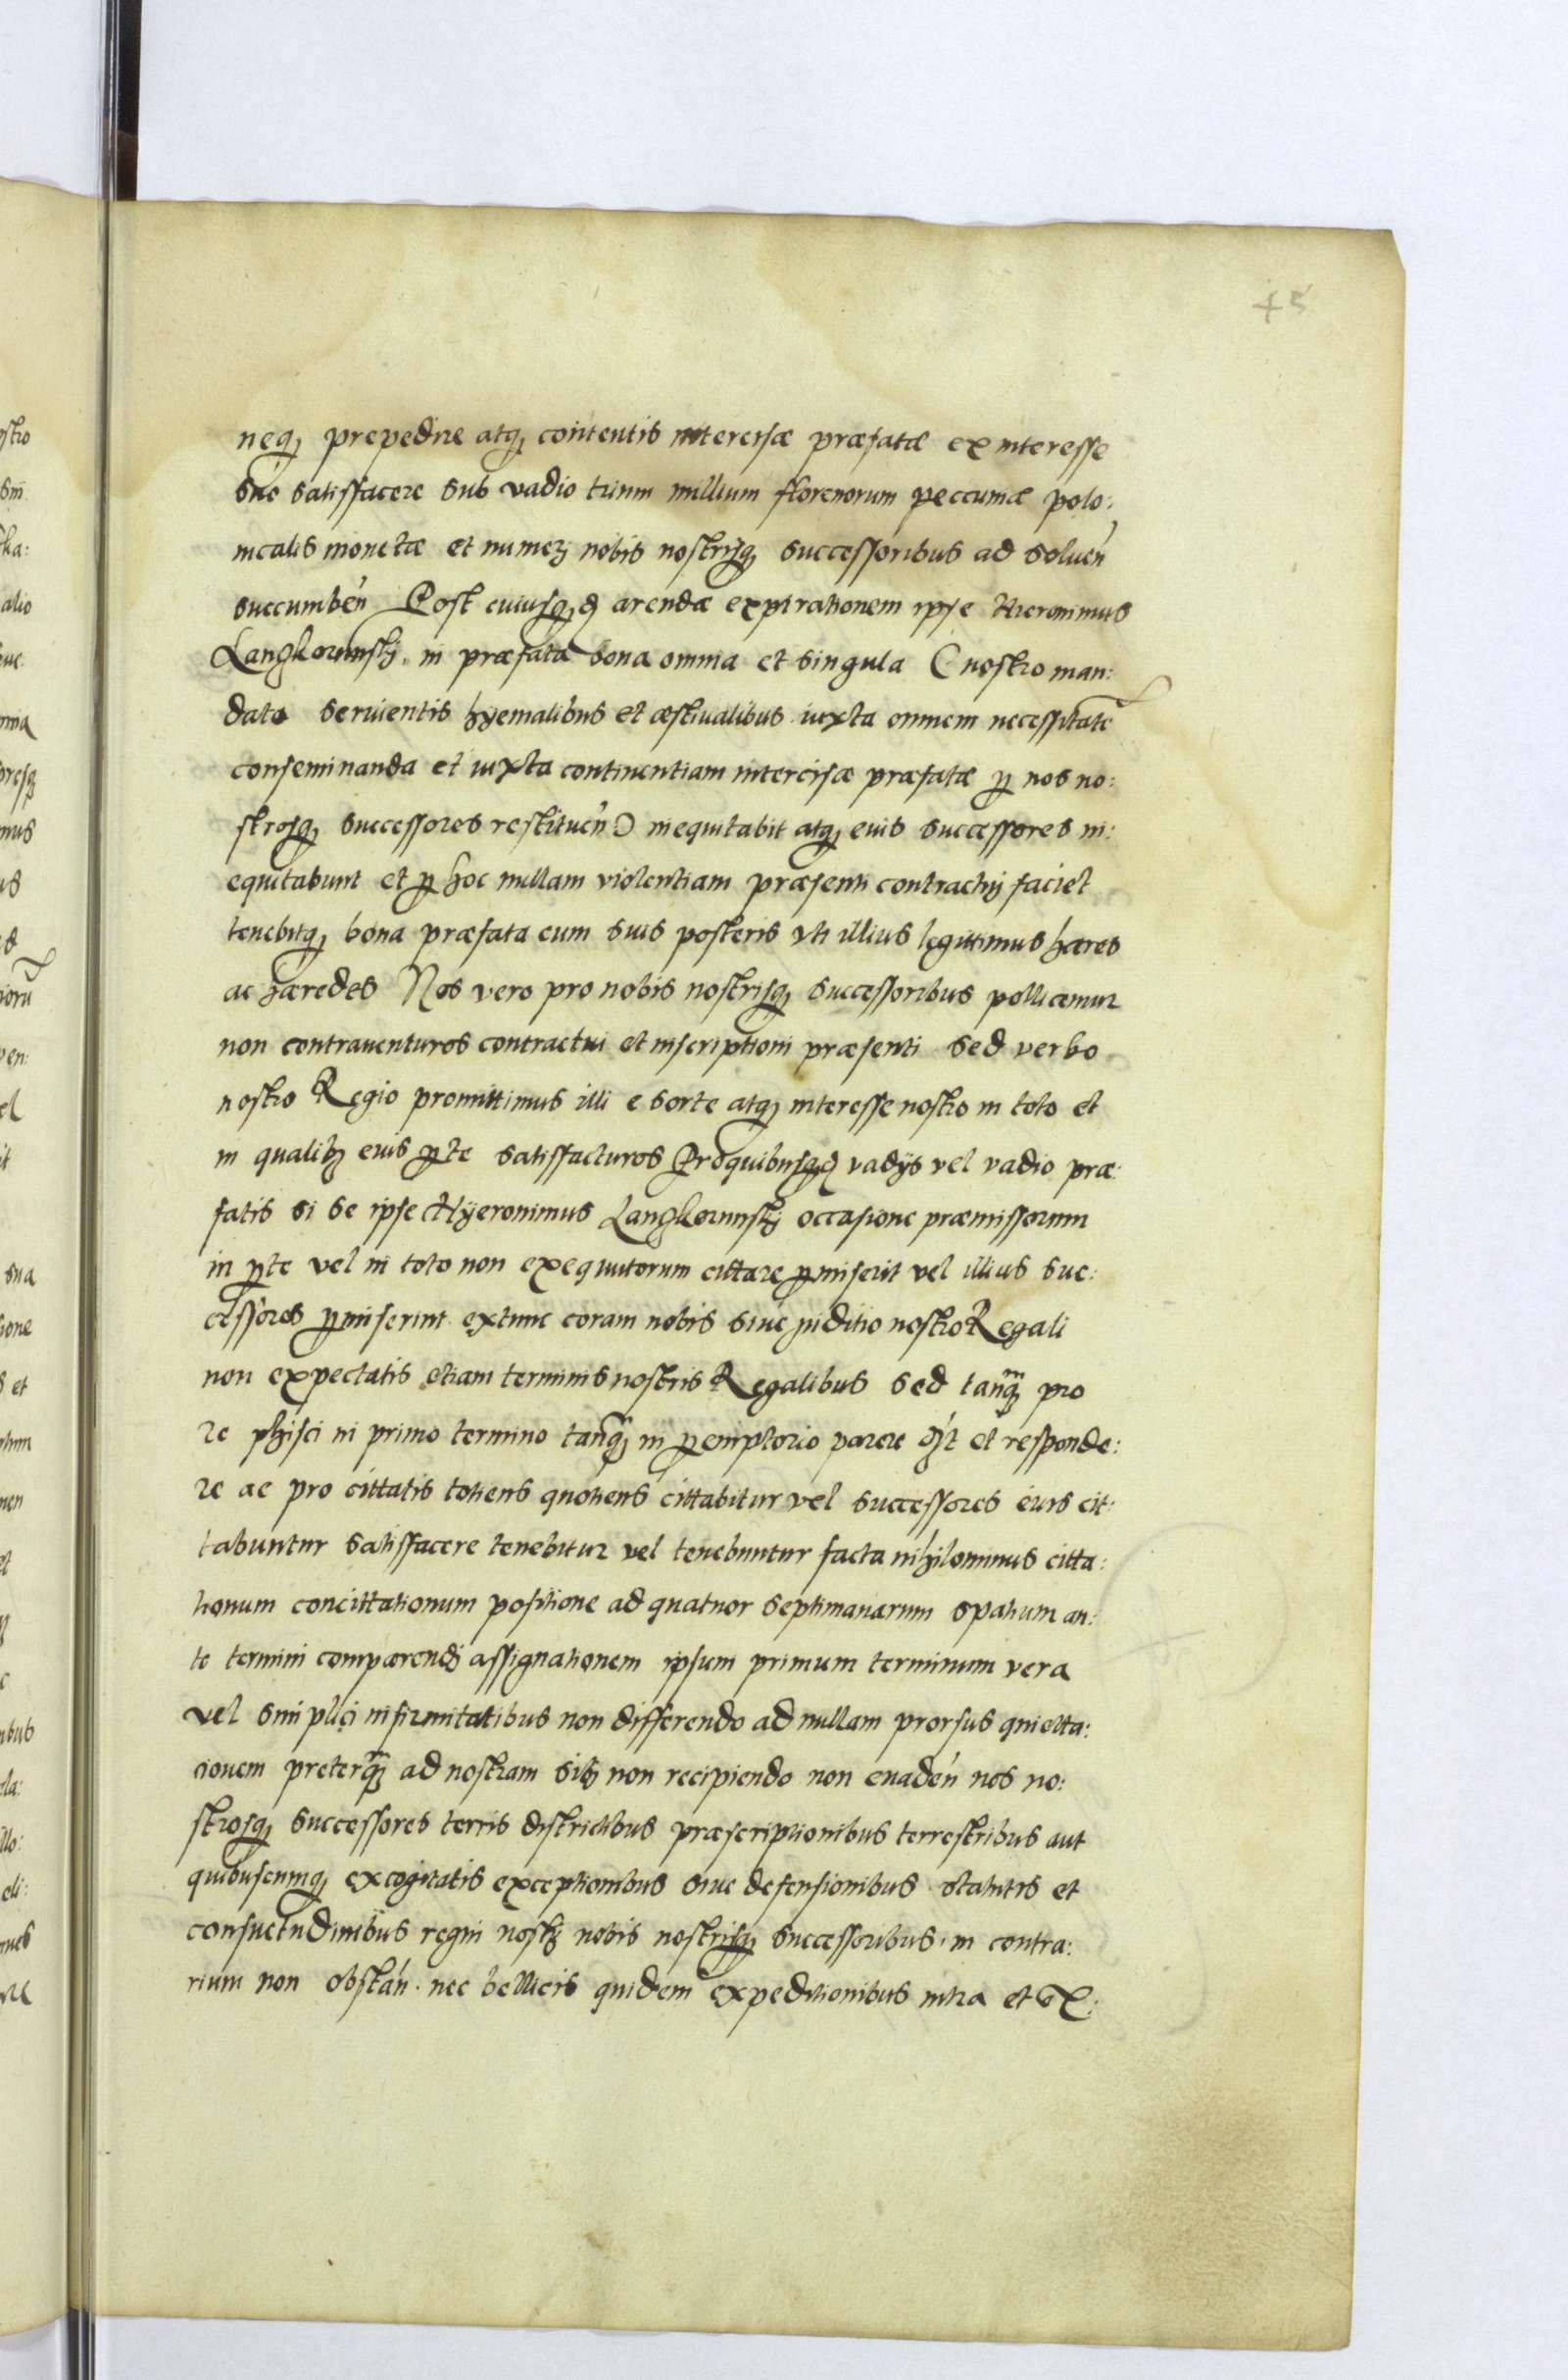 45
neq₃ prepedire atq₃ contentis intercisæ præfatæ ex interesse
suo satisfacere sub vadio trium millium florenorum peccuniæ polo:
nicalis monetæ et numeri nobis nostrisq₃ successoribus ad soluen̄
succumben̄ Post cuiusq₃d arendæ expirationem ipse Hieronimus
Langkorunskj in præfata bona omnia et singula (nostro man:
dato seruientis hyemalibus et æstiualibus iuxta omnem necessitatē
conseminanda et iuxta continentiam intercisæ præfatæ ꝑ nos no:
strosq₃ successores restituen̄) inequitabit atq₃ euis successores in:
equitabunt et ꝑ hoc nullam violentiam præsenti contractuj faciet
tenebitq₃ bona præfata cum suis posteris vti illius legittimus hæres
ac hæredes Nos vero pro nobis nostrisq₃ successoribus pollicemur
non contrauenturos contractui et inscriptioni præsenti sed verbo
nostro Regio promittimus illi e sorte atq₃ interesse nostro in toto et
in qualib₃ euis ꝑte satisfacturos Pro quibusq₃d vadijs vel vadio præ:
fatis si se ipse Hyeronimus Langkorunskj occasione præmissorum
in ꝑte vel in toto non exequutorum cittare ꝑmiserit vel illius suc:
cessores ꝑmiserint extunc coram nobis siue juditio nostro Regali
non expectatis etiam terminis nostris Regalibus sed tanq̄₃ pro
re phisci in primo termino tanq̄₃ in ꝑemptorio parere et responde:
re ac pro cittatis totiens quotiens cittabitur vel successores euis cit:
tabuntur satisfacere tenebitur vel tenebuntur facta nihilominus citta:
tionum concittationum positione ad quatuor septimanarum spatium an:
te termini comparendj assignationem ipsum primum terminum vera
vel simplici infirmitatibus non differendo ad nullam prorsus quietta:
cionem preterq̄₃ ad nostram sib₃ non recipiendo non euaden̄ nos no:
strosq₃ successores terris districtibus præscriptionibus terrestribus aut
quibuscunq₃ excogitatis exceptionibus siue defensionibus statutis et
consuetudinibus regni nostrj nobis nostrisq₃ successoribus in contra:
rium non obstan̄ nec bellicis quidem expeditionibus intra et ex: